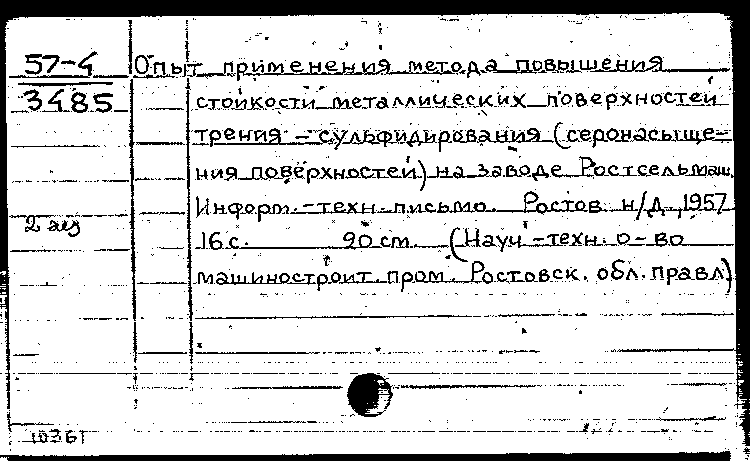 57-4 Опыт применения метода повышения
3485 стойкости металлических поверхностей
трения - сульфидирования (серонасыще-
ния поверхностей) на заводе Ростсельмаш.
Информ.-техн. письмо. Ростов н/Д., 1957
2 экз
16 с. 20 см. (Науч-техн. о-во
машиностроит. пром. Ростовск. обл. правл)
10361